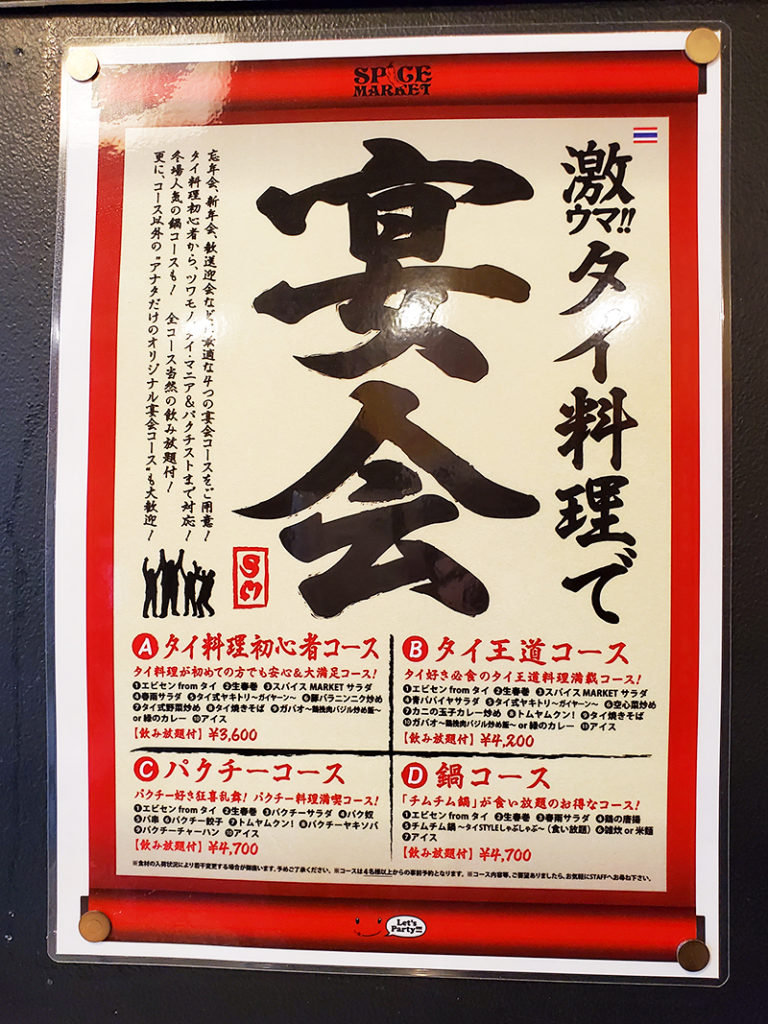 SPICE
MARKET
激ウマ!!タイ料理で
宴会
忘年会、新年会、歓送迎会など、最適な4つの宴会コースをご用意!
タイ料理初心者から、ツワモノタイ・マニア&パクチストまで対応!
冬場人気の鍋コースも! 全コース当然の飲み放題付!
更に、コース以外の"アナタだけのオリジナル宴会コース"も大歓迎!
SM
A タイ料理初心者コース
タイ料理が初めての方でも安心&大満足コース!
❶エビセン from タイ ❷生春巻 ❸スパイス MARKET サラダ
❹春雨サラダ ❺タイ式ヤキトリ〜ガイヤーン〜 ❻豚バラニンニク炒め
❼タイ式野菜炒め ❽タイ焼きそば ❾ガパオ〜鶏挽肉バジル炒め飯〜
or 緑のカレー ❿アイス
【飲み放題付】¥3,600
B タイ王道コース
タイ好き必食のタイ王道料理満載コース!
❶エビセン from タイ ❷生春巻 ❸スパイス MARKET サラダ
❹青パパイヤサラダ ❺タイ式ヤキトリ〜ガイヤーン〜 ❻空心菜炒め
❼カニの玉子カレー炒め ❽トムヤムクン! ❾タイ焼きそば
❿ガパオ〜鶏挽肉バジル炒め飯〜 or 緑のカレー ⓫アイス
【飲み放題付】¥4,200
C パクチーコース
パクチー好き狂喜乱舞! パクチー料理満喫コース!
❶エビセン from タイ ❷生春巻 ❸パクチーサラダ ❹パク奴
❺パ串 ❻パクチー餃子 ❼トムヤムクン! ❽パクチーヤキソバ
❾パクチーチャーハン ❿アイス
【飲み放題付】¥4,700
D 鍋コース
「チムチム鍋」が食い放題のお得なコース!
❶エビセン from タイ ❷生春巻 ❸春雨サラダ ❹鶏の唐揚
❺チムチム鍋 〜タイSTYLEしゃぶしゃぶ〜(食い放題) ❻雑炊 or 米麺
❼アイス
【飲み放題付】¥4,700
※食材の入荷状況により若干変更する場合が御座います。予めご了承ください。 ※コースは4名様以上からの事前予約となります。 ※コース内容等、ご要望ありましたら、お気軽にSTAFFへお尋ね下さい。
Let's
Party!!!